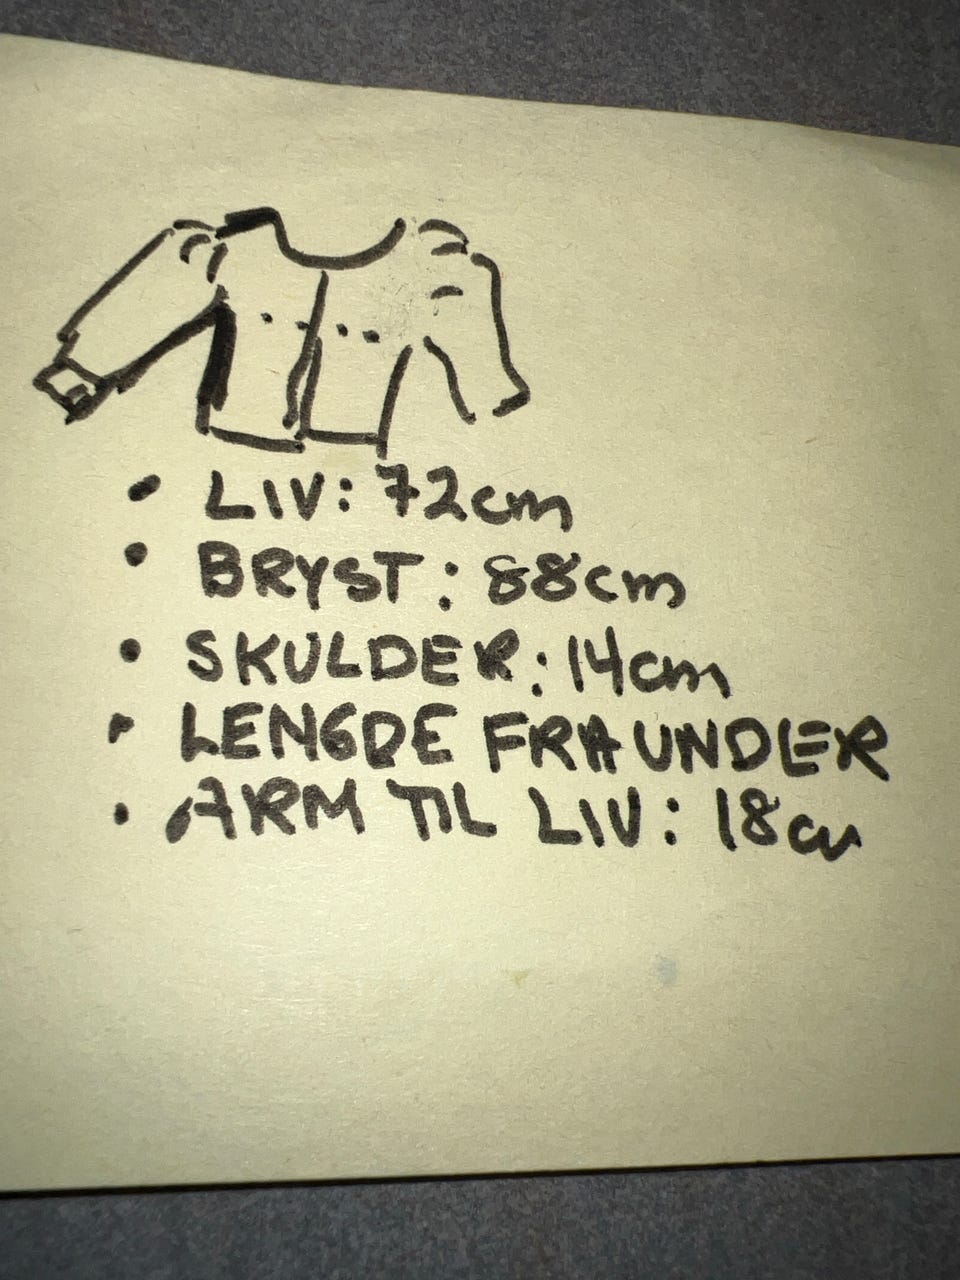 • LIV: 72cm
• BRYST: 88cm
• SKULDER: 14cm
• LENGDE FRA UNDER
• ARM TIL LIV: 18cm